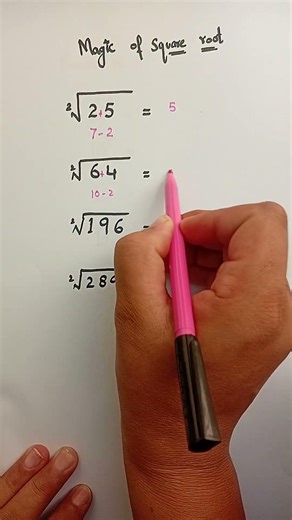 Magic of Square root
²√2+5 = 5
7-2
²√6+4 =
10-2
²√196 =
²√28